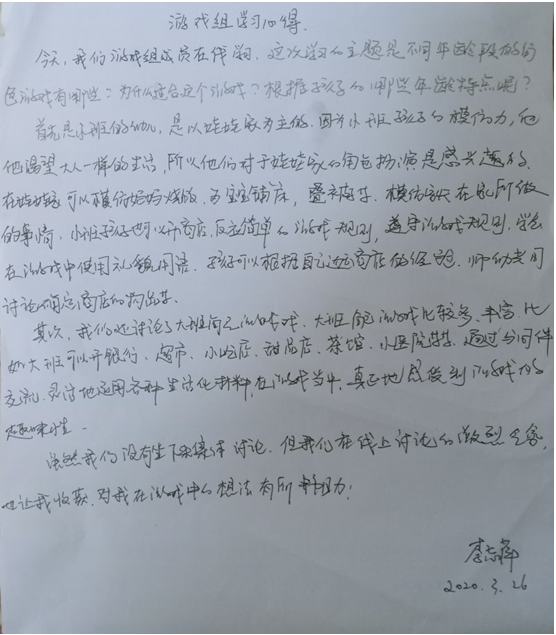 游戏组学习心得.
今天,我们游戏组成员在线学习.这次学习的主题是不同年龄段的角
色游戏有哪些?为什么适合这个游戏?根据孩子的哪些年龄特点呢?
首先是小班的幼儿,是以娃娃家为主的.因为小班孩子的模仿力,他
他渴望大人一样的生活,所以他们对于娃娃家的角色扮演是感兴趣的.
在娃娃家可以模仿妈妈烧饭.为宝宝铺床,叠被等.模仿家长在家所做
的事情.小班孩子也可以开商店.反应简单的游戏规则,遵守游戏规则.学会
在游戏中使用礼貌用语.孩子可以根据自己逛商店的经验.师幼共同
讨论确定商店的商品等.
其次,我们还讨论了大班角色游戏.大班角色游戏比较多、丰富.比
如大班可以开银行、超市、小吃店、甜品店、茶馆、小医院等等.通过与同伴
交流.灵活地运用各种生活化材料,在游戏当中,真正地感受到游戏的
趣味性.
虽然我们没有坐下来集体讨论.但我们在线上讨论的激烈
也让我收获.对我在游戏中的想法有所 助力!
李
2020.3.26